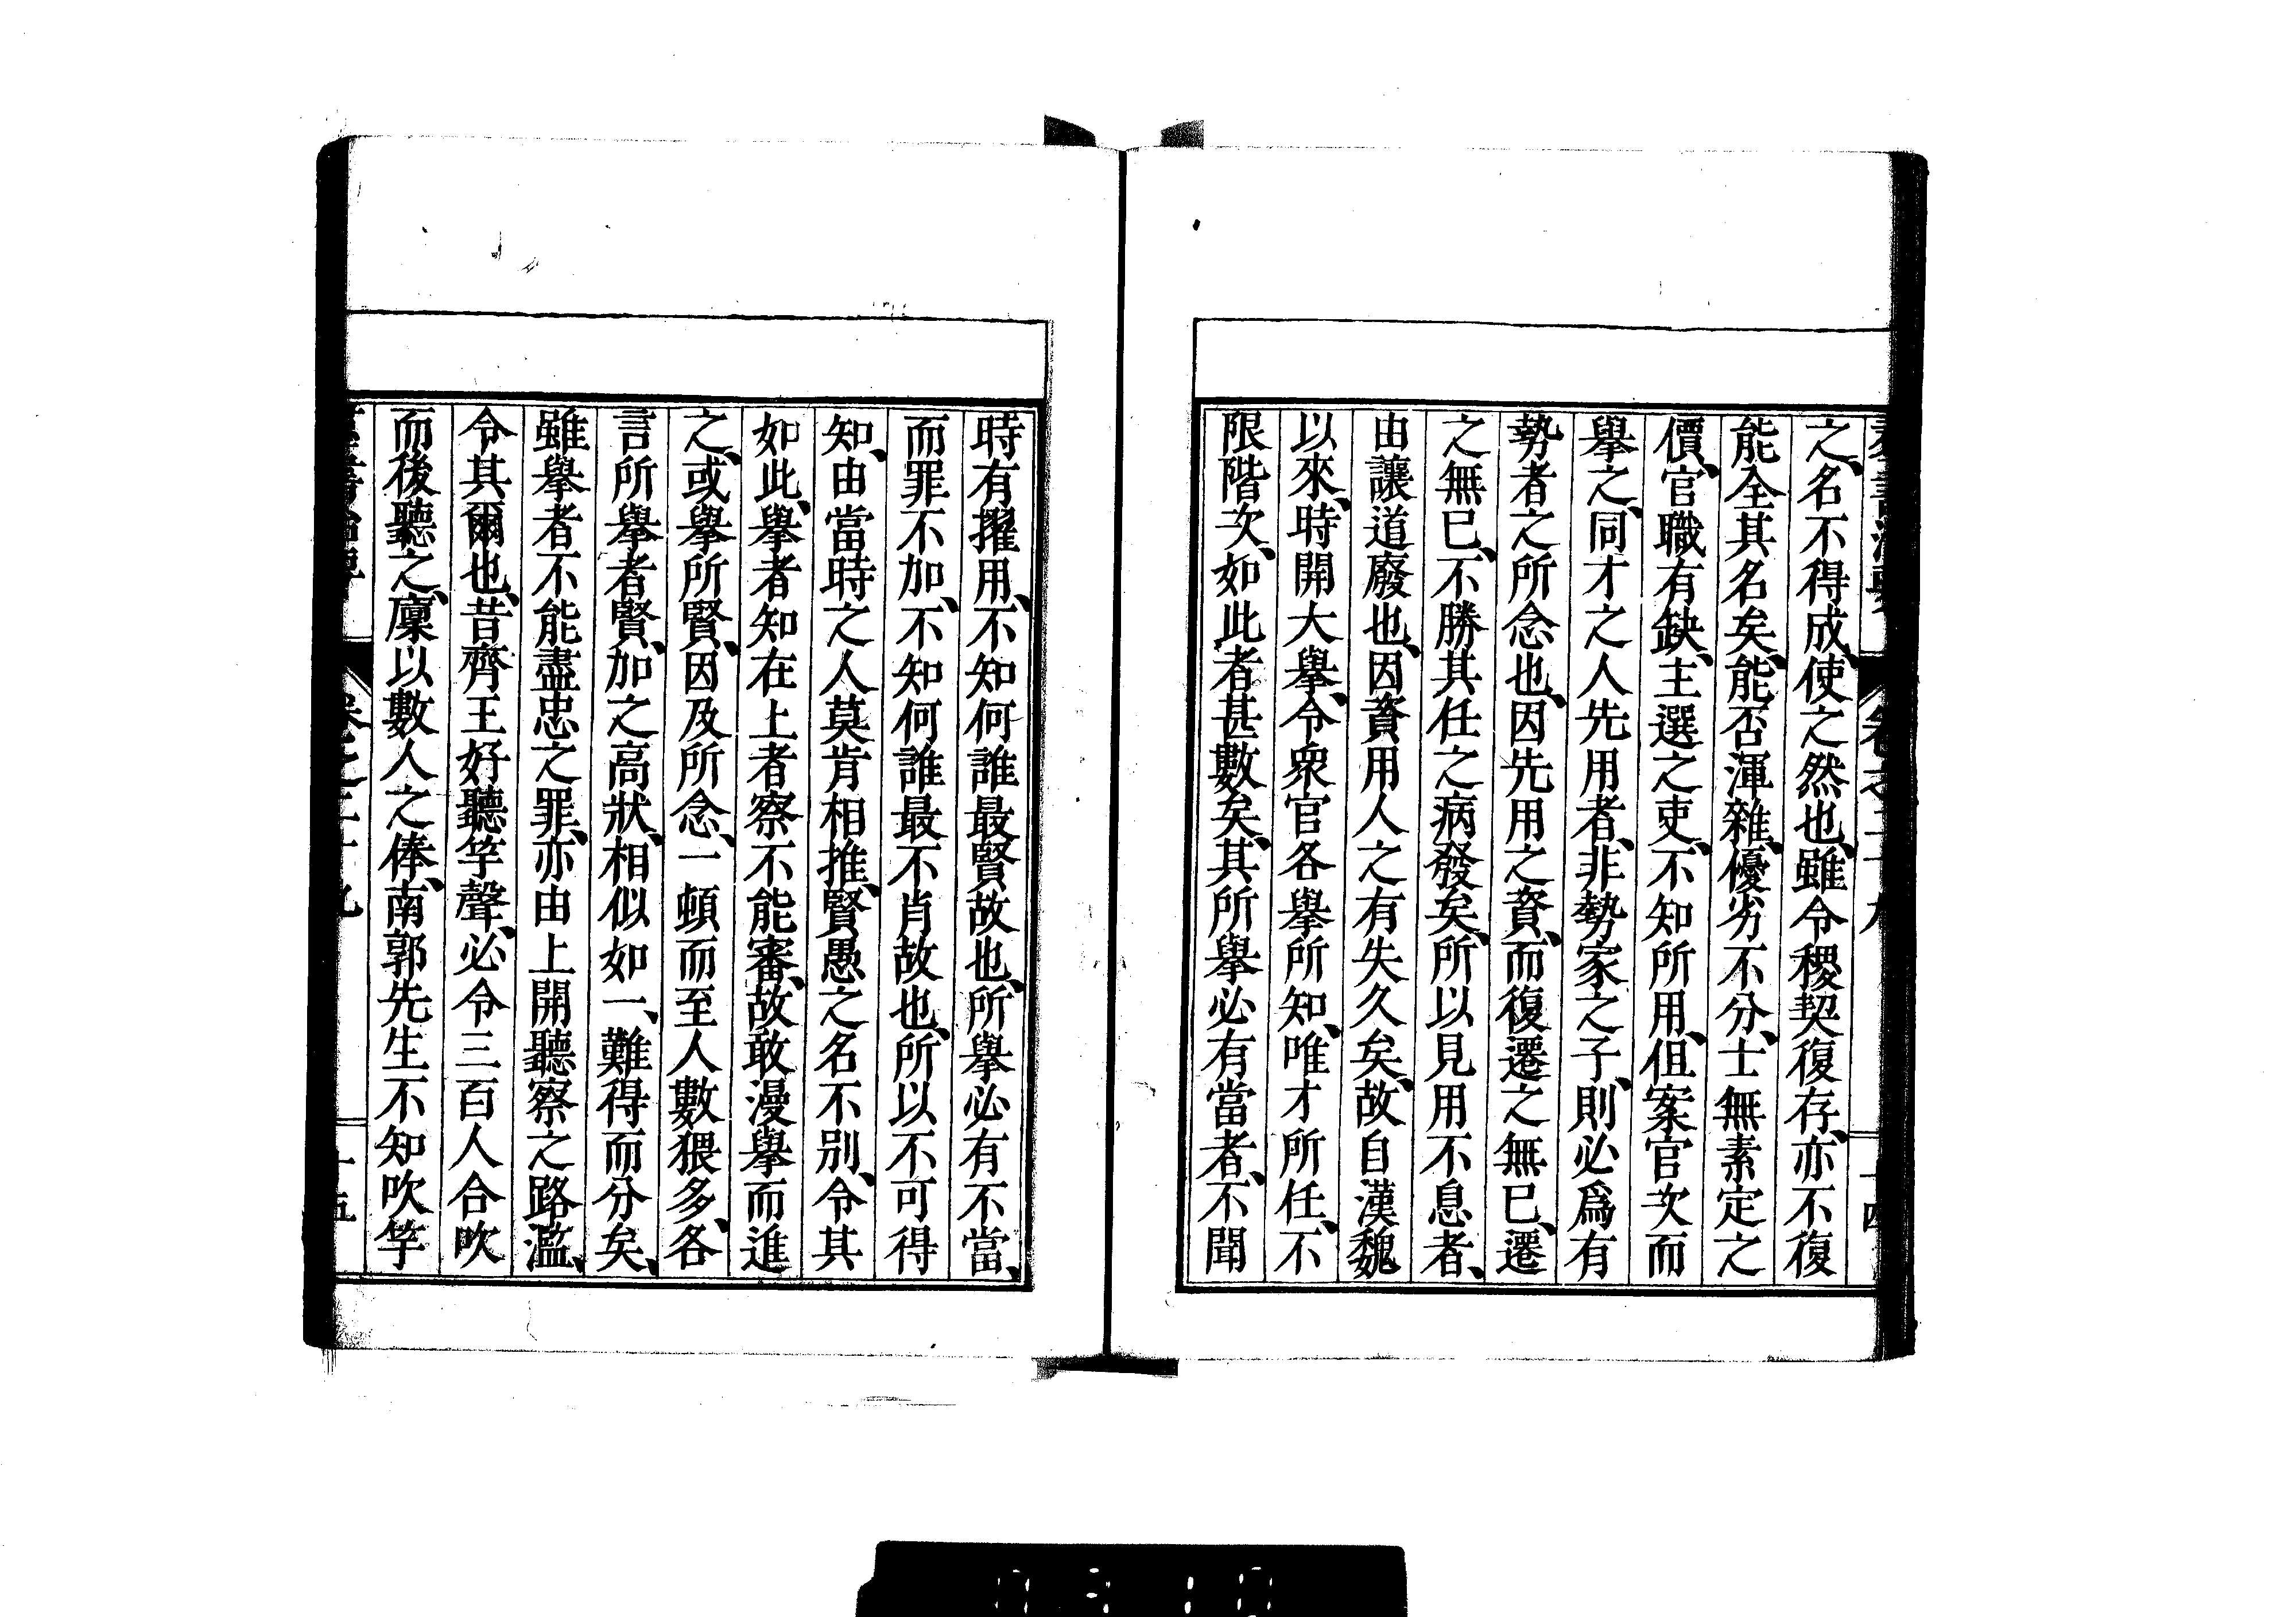 之、名不得成、使之然也、雖令稷契復存、亦不復
能全其名矣、能否渾雜、優劣不分、士無素定之
價、官職有缺、主選之吏、不知所用、但案官次而
擧之、同才之人先用者、非勢家之子、則必爲有
勢者之所念也、因先用之資、而復遷之無已、遷
之無已、不勝其任之病發矣、所以見用不息者、
由讓道廢也、因資用人之有失久矣、故自漢魏
以來、時開大擧、令衆官各擧所知、唯才所任、不
限階次、如此者甚數矣、其所擧必有當者、不聞
時有擢用、不知何誰最賢故也、所擧必有不當、
而罪不加、不知何誰最不肖故也、所以不可得
知、由當時之人莫肯相推、賢愚之名不別、令其
如此、擧者知在上者察不能審、故敢漫擧而進
之、或擧所賢、因及所念、一頓而至人數猥多、各
言所擧者賢、加之高狀、相似如一、難得而分矣、
雖擧者不能盡忠之罪、亦由上開聽察之路濫、
令其爾也、昔齊王好聽竽聲、必令三百人合吹
而後聽之、廩以數人之俸、南郭先生不知吹竽